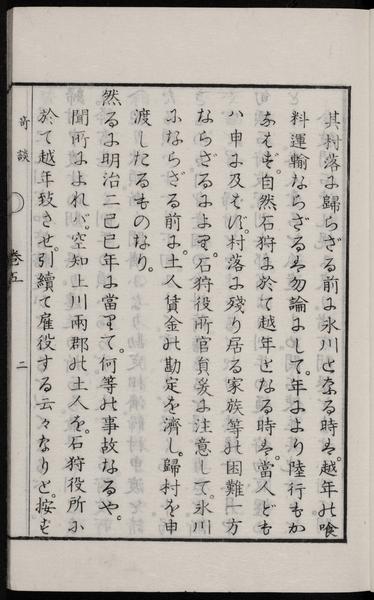 其村落に歸らざる前に氷川となる時は。越年の喰
料運輸ならざるは勿論にして。年により陸行もか
なはず。自然石狩に於て越年となる時は。當人ども
ハ申に及はず。村落に殘り居る家族等の困難一方
ならざるにより。石狩役所官員爰に注意して。氷川
にならざる前に。土人賃金の勘定を濟し。歸村を申
渡したるものなり。
然るに明治二己巳年に當りて。何等の事故なるや。
聞所によれバ。空知上川兩郡の土人を。石狩役所に
於て越年致させ。引續て雇役する云々なりと。按ず
奇談
卷五
二